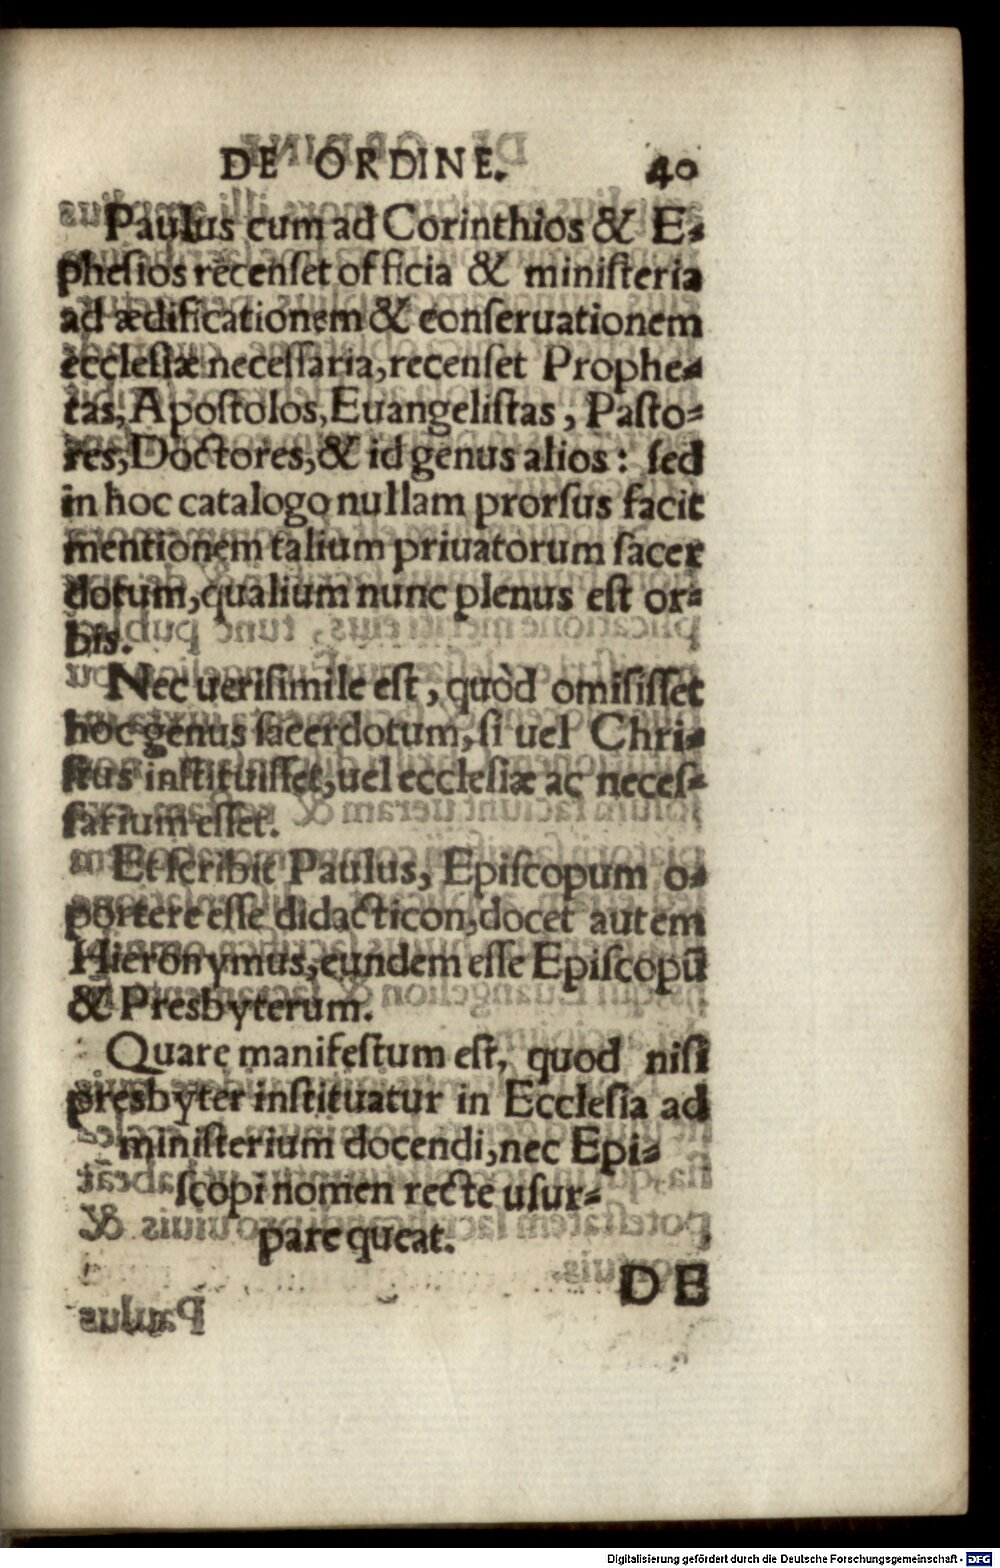 DE ORDINE. 40
Paulus cum ad Corinthios & E-
phesios recenſet officia & miniſteria
ad ædificationem & conſeruationem
eccleſiæ neceſſaria, recenſet Prophe-
tas, Apoſtolos, Euangeliſtas, Paſto-
res, Doctores, & id genus alios: ſed
in hoc catalogo nullam prorſus facit
mentionem talium priuatorum ſacer
dotum, qualium nunc plenus eſt or-
bis.
Nec ueriſimile eſt, quòd omiſiſſet
hoc genus ſacerdotum, ſi uel Chri-
ſtus inſtituiſſet, uel eccleſiæ ac neceſ-
ſarium eſſet.
Et ſcribit Paulus, Epiſcopum o-
portere eſſe didacticon, docet autem
Hieronymus, eundem eſſe Epiſcopū
& Presbyterum.
Quare manifeſtum eſt, quod niſi
presbyter inſtituatur in Eccleſia ad
miniſterium docendi, nec Epi-
ſcopi nomen recte uſur-
pare queat.
DE
Digitalisierung gefördert durch die Deutsche Forschungsgemeinschaft - DFG